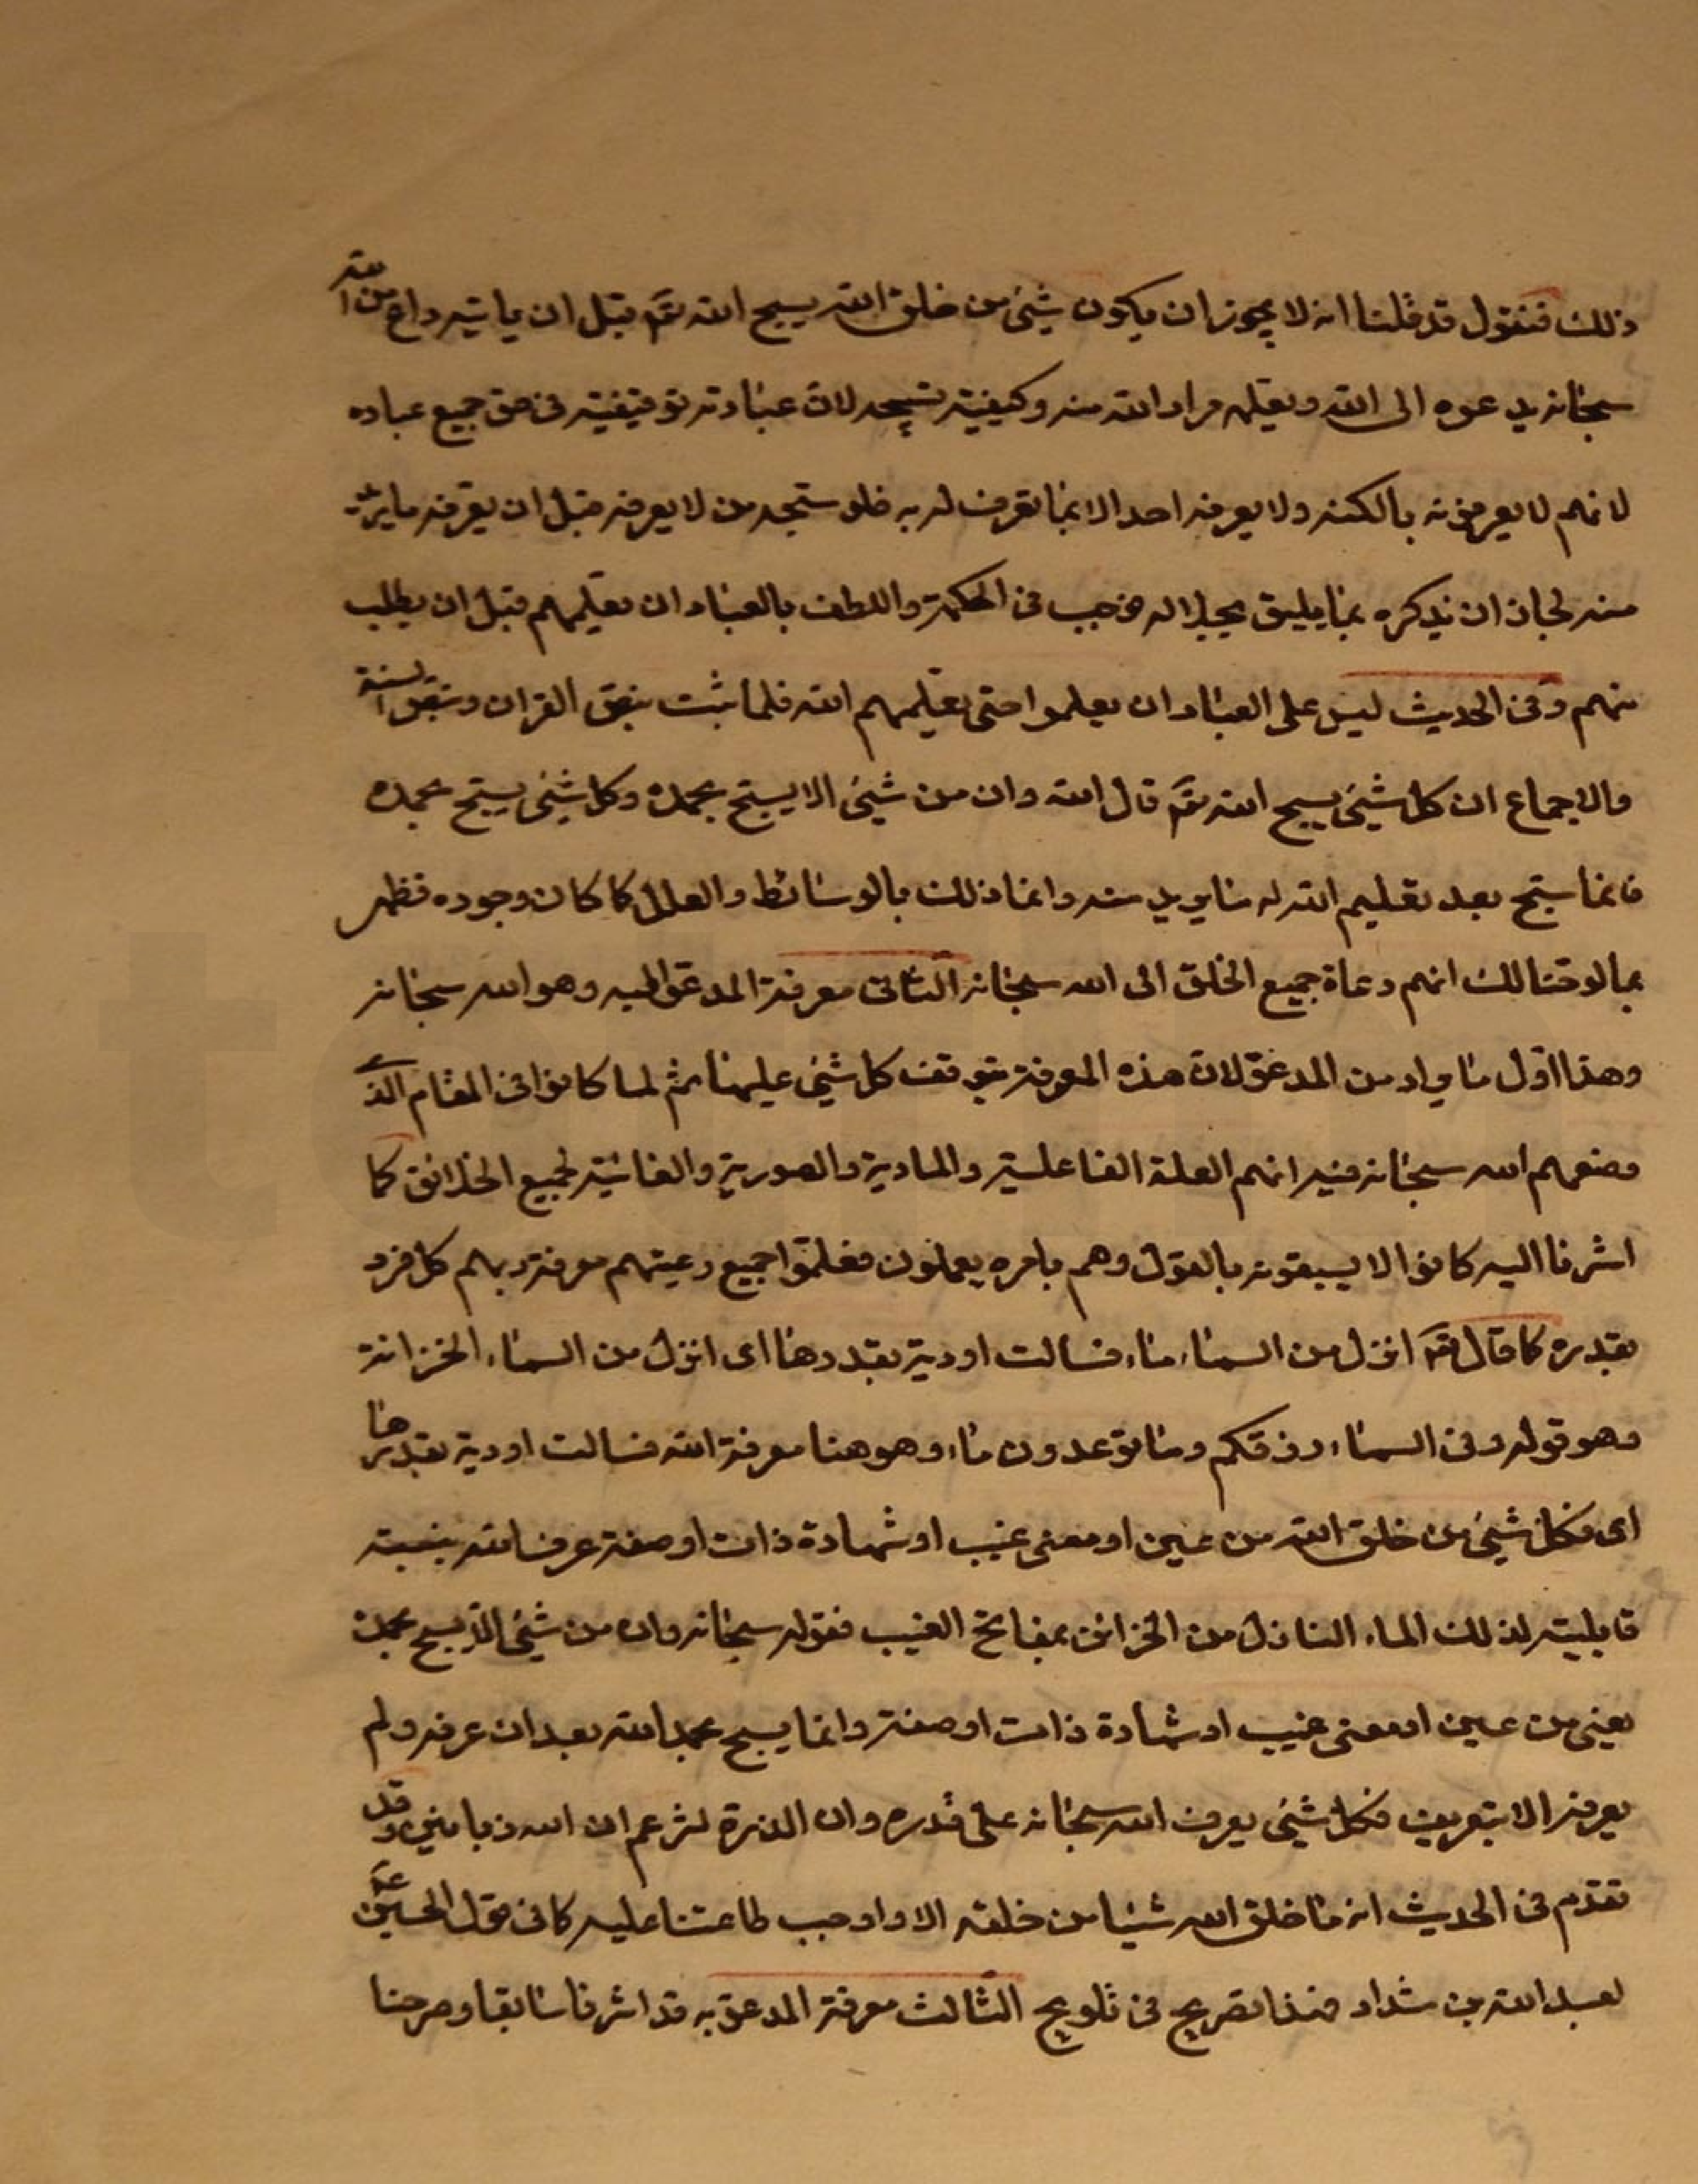 ذلك فنقول قد قلنا انه لا يجوز ان يكون شئ من خلق الله يسبح الله تعم قبل ان ياتيه داع من الله
سبحانه يدعوه الى الله ويعلمه مراد الله منه وكيفية تسبيحه لان عبادته توقيفية فى حق جميع عباده
لانهم لا يعرفونه بالكنه ولا يعرفه احد الا بما تعرف له به فلو سبحه من لا يعرفه قبل ان يعرفه ما يريد
منه لجاز ان يذكره بما يليق بجلاله فوجب فى الحكمة واللطف بالعباد ان يعلمهم قبل ان يطلب
منهم وفى الحديث ليس على العباد ان يعلموا حتى يعلمهم الله فلما ثبت بنص القران وبنص السنة
والاجماع ان كل شئ يسبح الله تعم قال الله وان من شئ الا يسبح بحمده وكل شئ يسبح بحمده
فانما سبح بعد تعليم الله له ما يريد منه وانما ذلك بالوسائط والعلل كما كان وجوده فظهر
بما لوحنا لك انهم دعاة جميع الخلق الى الله سبحانه الثانى معرفة المدعو اليه وهو الله سبحانه
وهذا اول ما يراد من المدعو لان هذه المعرفة يتوقف كل شئ عليها ثم لما كانوا فى المقام الذى
وضعهم الله سبحانه فيه انهم العلة الفاعلية والمادية والصورية والغائية لجميع الخلائق كما
اشرنا اليه كانوا لا يسبقونه بالقول وهم بامره يعملون فعلموا جميع رعيتهم معرفة ربهم كل فرد
بقدره كما قال تعم انزل من السماء ماء فسالت اودية بقدرها اى انزل من السماء الخزانة
وهو قوله وفى السماء رزقكم وما توعدون ماء وهو هنا معرفة الله فسالت اودية بقدرها
اى فكل شئ من خلق الله من عين او معنى غيب او شهادة ذات او صفة عرف الله بنسبة
قابليته لذلك الماء النازل من الخزائن بمفاتح الغيب فقوله سبحانه وان من شئ الا يسبح بحمده
يعنى من عين او معنى غيب او شهادة ذات او صفة وانما يسبح بحمد الله بعد ان عرفه ولم
يعرفه الا بتعريف فكل شئ يعرف الله سبحانه على قدره وان الذرة لتزعم ان لله زبانيتين وقد
تقدم فى الحديث انه ما خلق الله شيئا من خلقه الا واوجب طاعتنا عليه كما فى قول الحسين عم
لعبد الله بن شداد فهذا تصريح فى تلويح الثالث معرفة المدعو به قد اشرنا سابقا وصرحنا